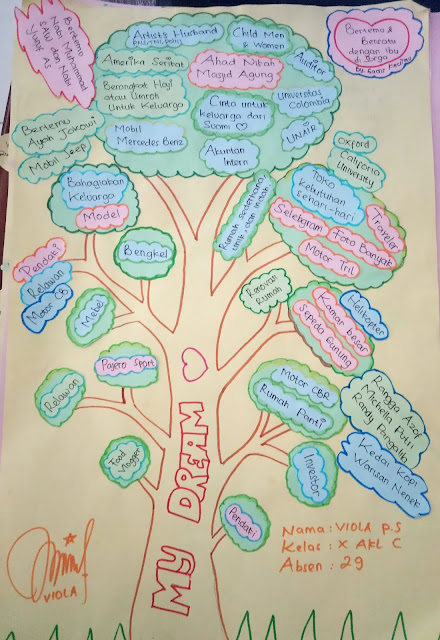 Bertemu
Nabi Muhammad
SAW dan Nabi
Yusuf As
Artist's Husband
Child Men
& Women
Bertemu &
Bersatu
dengan Ibu
di Surga
Amerika Serikat
Ahad Nikah
Masjid Agung
Auditor
Berangkat Haji
atau Umroh
Untuk Keluarga
Cinta untuk
Keluarga dari
Suami
Universitas
Colombia
UNAIR
Mobil
Mercedes Benz
Akuntan
Intern
Bertemu
Ayah Jokowi
Mobil Jeep
Oxford
California
University
Bahagiakan
Keluarga
Model
Rumah sederhana
unik, dan indah
Toko
Kebutuhan
sehari-hari
Traveler
Selebgram
Foto Banyak
Motor Tril
Bengkel
Pendaki
Relawan
Motor CB
Renovasi
Rumah
Mebel
Helikopter
Kamar besar
Sepeda Gunung
Pajero Sport
Relawan
Motor CBR
Rumah Panti
Rangga Azof
Michella Putri
Randy Pangalila
Kedai Kopi
Warisan Nenek
Food
Vlogger
Investor
Pendaki
MY DREAM
Nama : VIOLA P.S
Kelas : X AKL C
Absen : 29
VIOLA